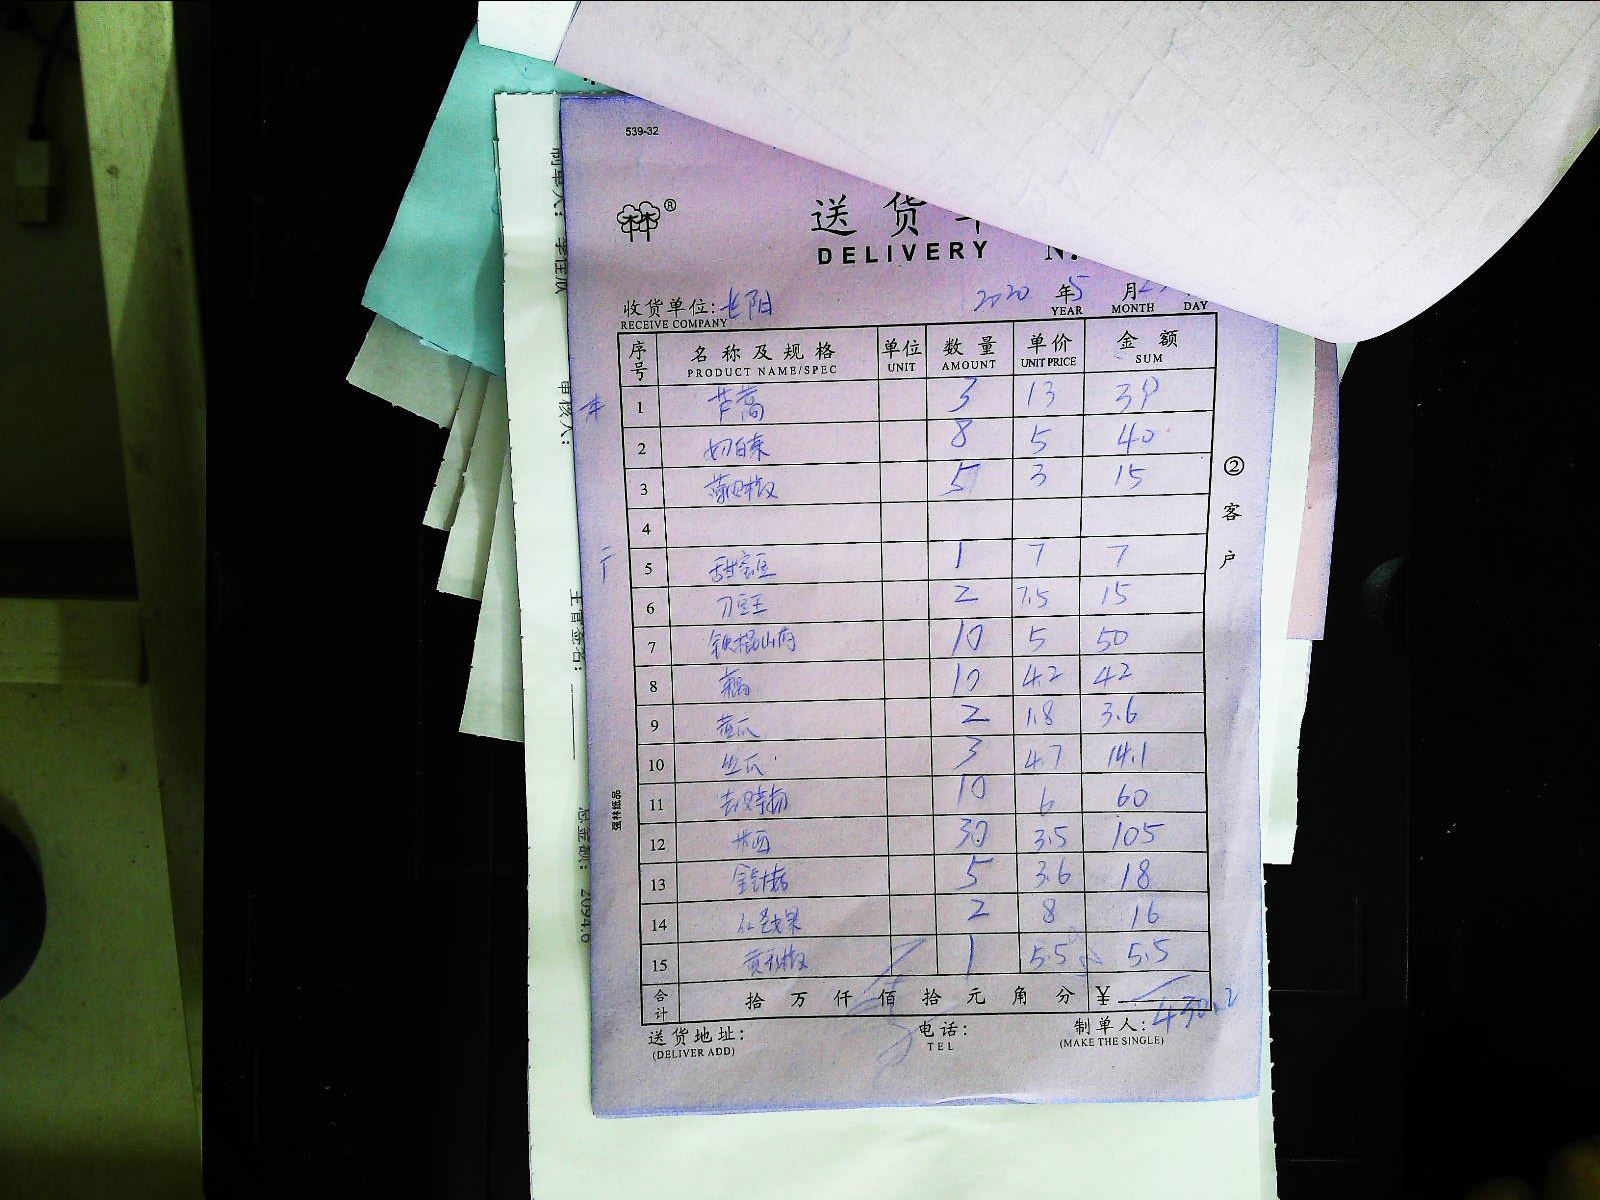 539-32
®
送货
DELIVERY
收货单位: 长阳 2020 年 5 月
RECEIVE COMPANY YEAR MONTH DAY
序号 名称及规格 单位 数量 单价 金额
PRODUCT NAME/SPEC UNIT AMOUNT UNIT PRICE SUM
1 芦蒿 3 13 39
2 奶白菜 8 5 40
3 5 3 15
4
5 甜蜜豆 1 7 7
6 刀豆王 2 7.5 15
7 铁棍山药 10 5 50
8 藕 10 4.2 42
9 黄瓜 2 1.8 3.6
10 丝瓜 3 4.7 14.1
11 10 6 60
12 30 3.5 105
13 金针菇 5 3.6 18
14 2 8 16
15 黄彩椒 1 5.5 5.5
合计 拾 万 仟 佰 拾 元 角 分 ¥ 430.2
送货地址: 电话: 制单人:
(DELIVER ADD) TEL (MAKE THE SINGLE)
② 客户
强林纸品
制单人:
审核人:
主管签名:
总金额: 2094.6